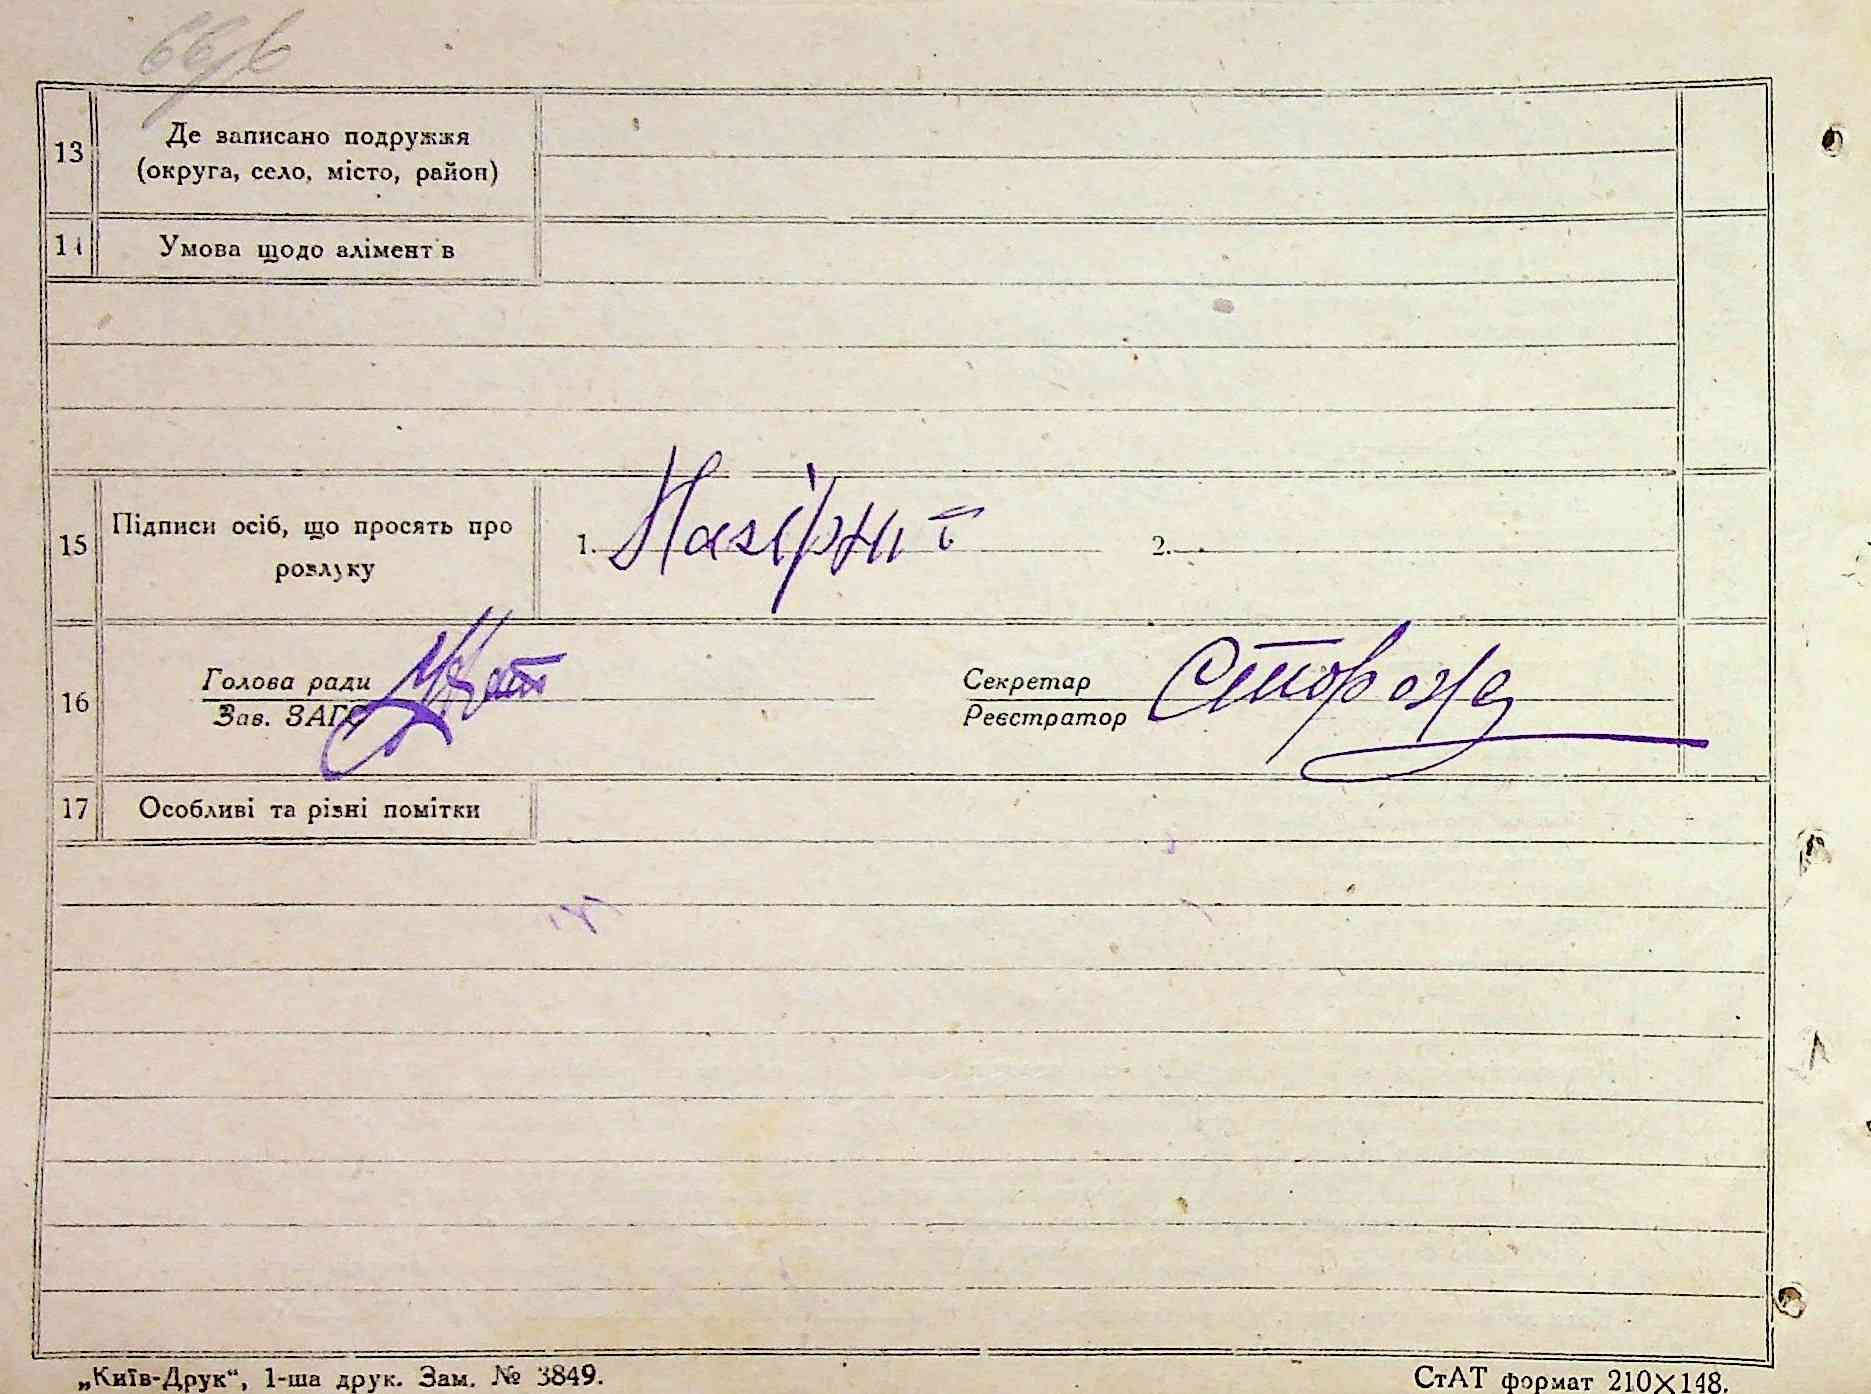 13
Де записано подружжя
(округа, село, місто, район)
14
Умова щодо алімент в
15
Підписи осіб, що просять про
розлуку
1. Назірний
2.
16
Голова ради
Зав. ЗАГС
Секретар
Реєстратор
Сторож
17
Особливі та різні помітки
„Київ-Друк“, 1-ша друк. Зам. № 3849.
СтАТ формат 210×148.